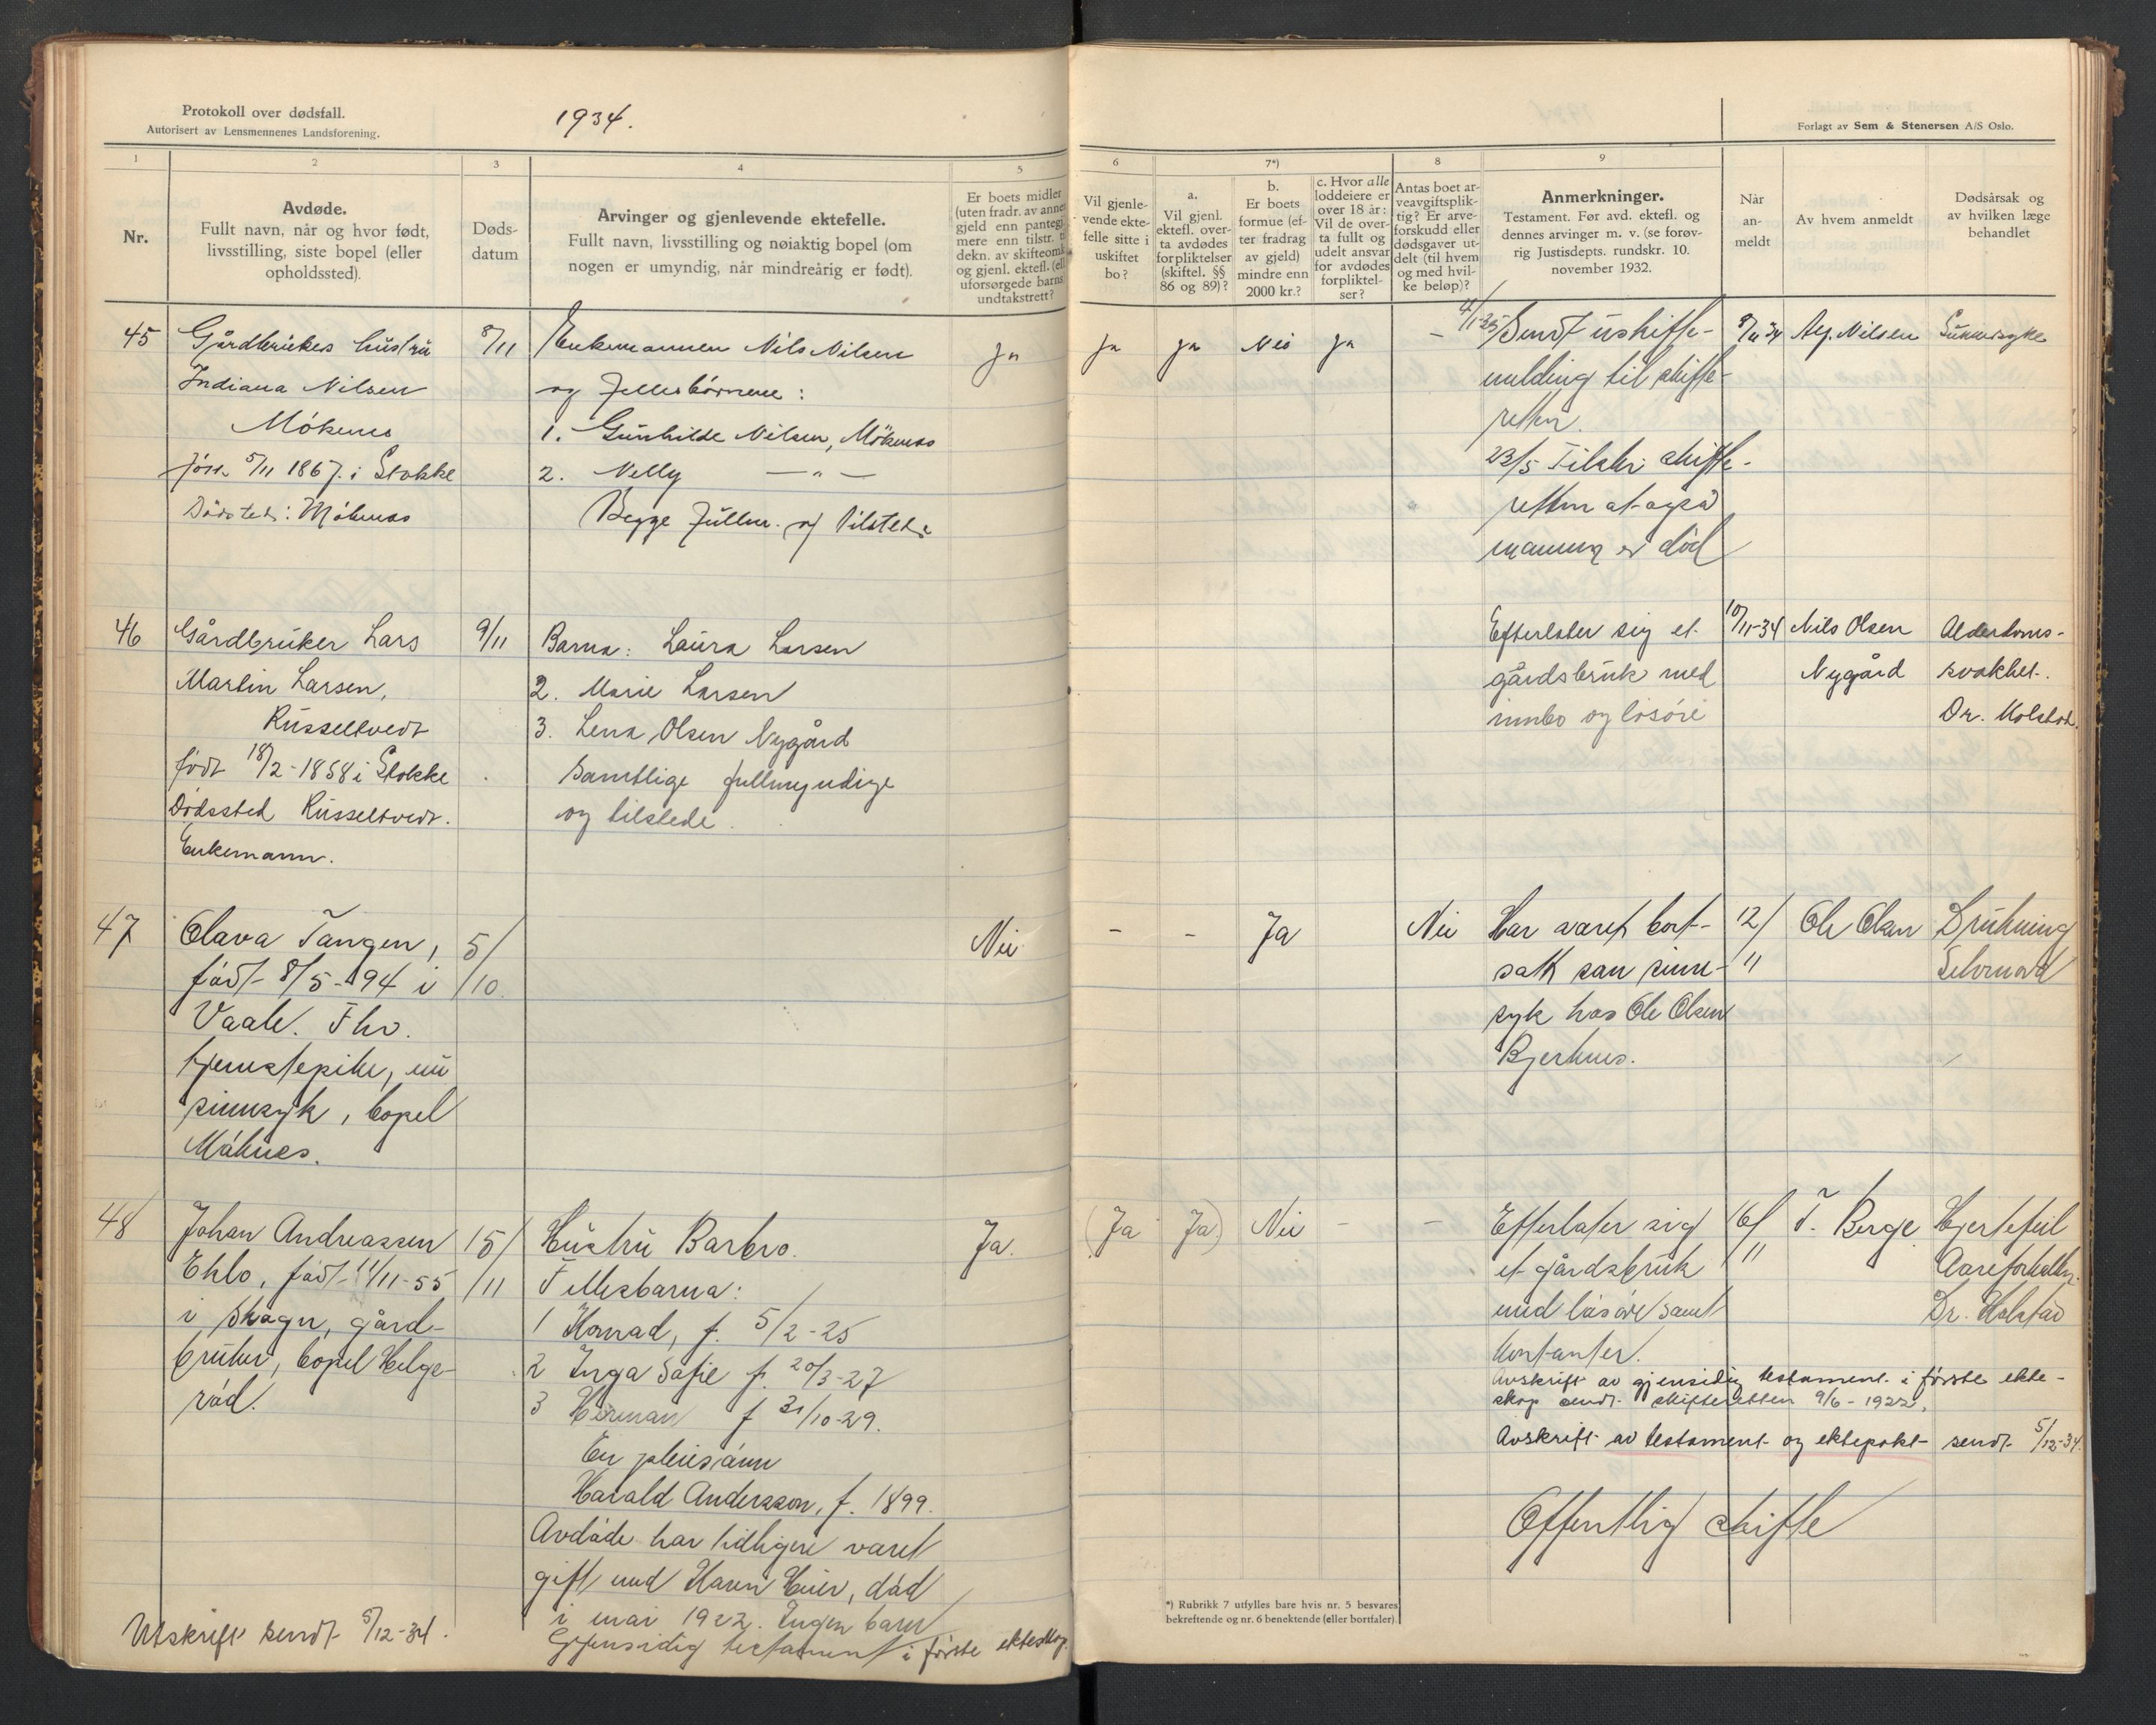 Protokoll over dødsfall.
Autorisert av Lensmennenes Landsforening.
1934.
Forlagt av Sem & Stenersen A/S Oslo.
1
2
3
4
5
6
7*)
8
9
Nr.
Avdøde.
Fullt navn, når og hvor født,
livsstilling, siste bopel (eller
opholdssted).
Døds-
datum
Arvinger og gjenlevende ektefelle.
Fullt navn, livsstilling og nøiaktig bopel (om
nogen er umyndig, når mindreårig er født).
Er boets midler
(uten fradr. av annen
gjeld enn pantegj.
mere enn tilstr. t.
dekn. av skifteomk.
og gjenl. ektefl. (ell.
uforsørgede barns
undtakstrett?
Vil gjenle-
vende ekte-
felle sitte i
uskiftet
bo?
a.
Vil gjenl.
ektefl. over-
ta avdødes
forpliktelser
(skiftel. §§
86 og 89)?
b.
Er boets
formue (ef-
ter fradrag
av gjeld)
mindre enn
2000 kr.?
c. Hvor alle
loddeiere er
over 18 år:
Vil de over-
ta fullt og
udelt ansvar
for avdødes
forpliktel-
ser?
Antas boet ar-
veavgiftsplik-
tig? Er arve-
forskudd eller
dødsgaver ut-
delt (til hvem
og med hvil-
ke beløp)?
Anmerkninger.
Testament. Før avd. ektefl. og
dennes arvinger m. v. (se forøv-
rig Justisdepts. rundskr. 10.
november 1932.
Når
an-
meldt
Av hvem anmeldt
Dødsårsak og
av hvilken læge
behandlet
45
Gårdbrukes hustru
Indiana Nilsen
Møkenes
født 5/11 1867. i Stokke
Dødsted: Møkenes
8/11
Enkemannen Nils Nilsen
og fellesbørnene:
1. Gunhilde Nilsen, Møkenes
2. Nelly — " —
Begge fullm. og tilstede
Ja
Ja
Ja
Nei
Ja
–
4/1-35 Sendt uskifte-
melding til skifte-
retten.
23/5 Tilskr. skifte-
retten at også
mannen er død
9/11 34
Nilsen
Sukkersyke
46
Gårdbruker Lars
Martin Larsen,
Russeltvedt
født 18/2-1858 i Stokke
Dødssted Russeltvedt.
Enkemann.
9/11
Barna: Laura Larsen
2. Marie Larsen
3. Lena Olsen Nygård
samtlige fullmyndige
og tilstede.
Efterlater sig et
gårdsbruk med
innbo og løsøre
10/11-34
Nils Olsen
Nygård
Alderdoms-
svakhet.
Dr. Holstad.
47
Olava Tangen,
født 8/5-94 i
Vaale. Fhv.
tjenestepike, nu
sinnsyk, bopel
Møknes.
5/
/10
Nei
–
–
Ja
Nei
Har været bort-
satt som sinns-
syk hos Ole Olsen
Bjerknes.
12/
11
Ole Olsen
Drukning
Selvmord
48
Johan Andreassen
Eklo, født 11/11-55
i Skoger, gård-
bruker, bopel Helge-
rød.
15/
/11
Hustru Barbro.
Fellesbarna:
1 Konrad, f. 5/2-25
2 Inga Sofie f. 20/3-27
3 Herman f 31/10-29.
En pleiesønn
Harald Andersson, f. 1899.
Avdøde har tidligere været
gift med Karen Heier, død
i mai 1922. Ingen barn
Gjensidig testament i første ekteskap.
Ja.
(Ja
Ja)
Nei
–
–
Efterlater sig
et gårdsbruk
med løsøre samt
kontanter.
Avskrift av gjensidig testament i første ekte-
skap sendt skifteretten 9/6-1922.
Avskrift av testament og ektepakt sendt 5/12-34.
Offentlig skifte
16/
11
T. Berge
Hjertefeil
Aareforkalkn.
Dr. Holstad
Utskrift sendt 5/12-34.
*) Rubrikk 7 utfylles bare hvis nr. 5 besvares
bekreftende og nr. 6 benektende (eller bortfaler).